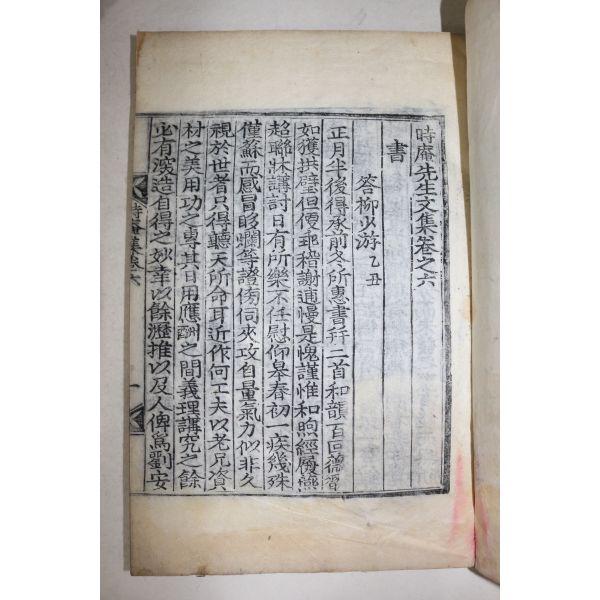 時庵先生文集卷之六
書
答柳少游 乙丑
正月半後得承前冬所惠書幷二首和韻百回德習
如獲拱璧但便郵稽謝逋慢是愧謹惟和煦經履燕
超聯牀講討日有所樂不任慰仰皐春初一疾幾殊
僅蘇而感冒眩爛等證傍伺夾攻自量氣力似非久
視於世者只得聽天所命耳近作何工夫以老兄資
材之美用功之專其日用應酬之間義理講究之餘
必有深造自得之妙幸以餘瀝推以及人俾爲劉安
時庵集卷六
一